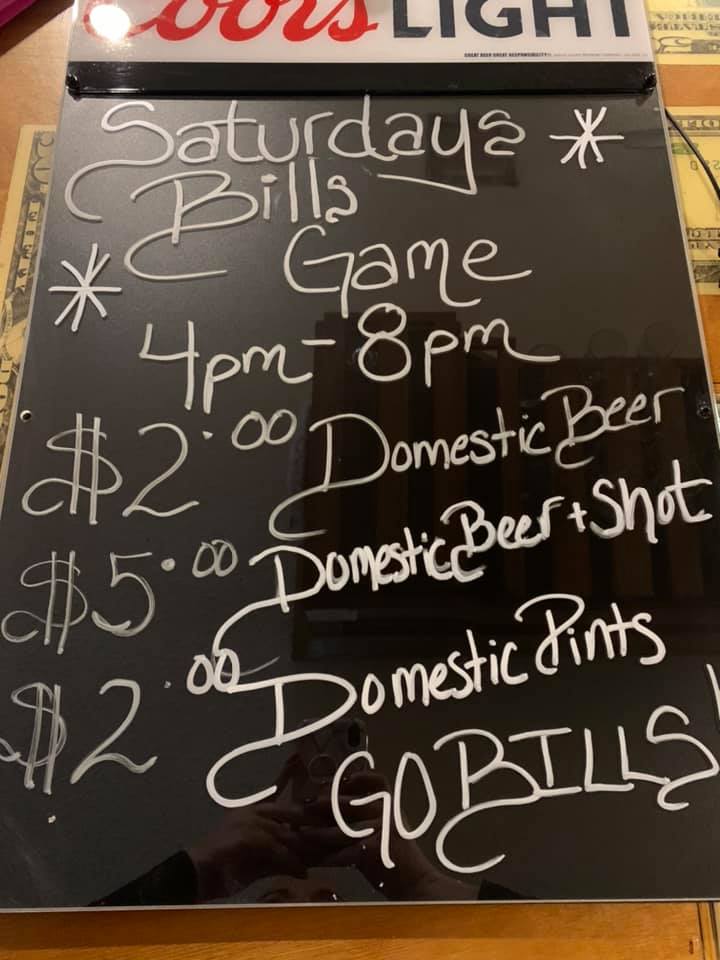 Coors LIGHT
GREAT BEER GREAT RESPONSIBILITY
Saturdays *
Bills
* Game
4pm-8pm
$2.00 Domestic Beer
$5.00 Domestic Beer + Shot
$2.00 Domestic Pints
GO BILLS!